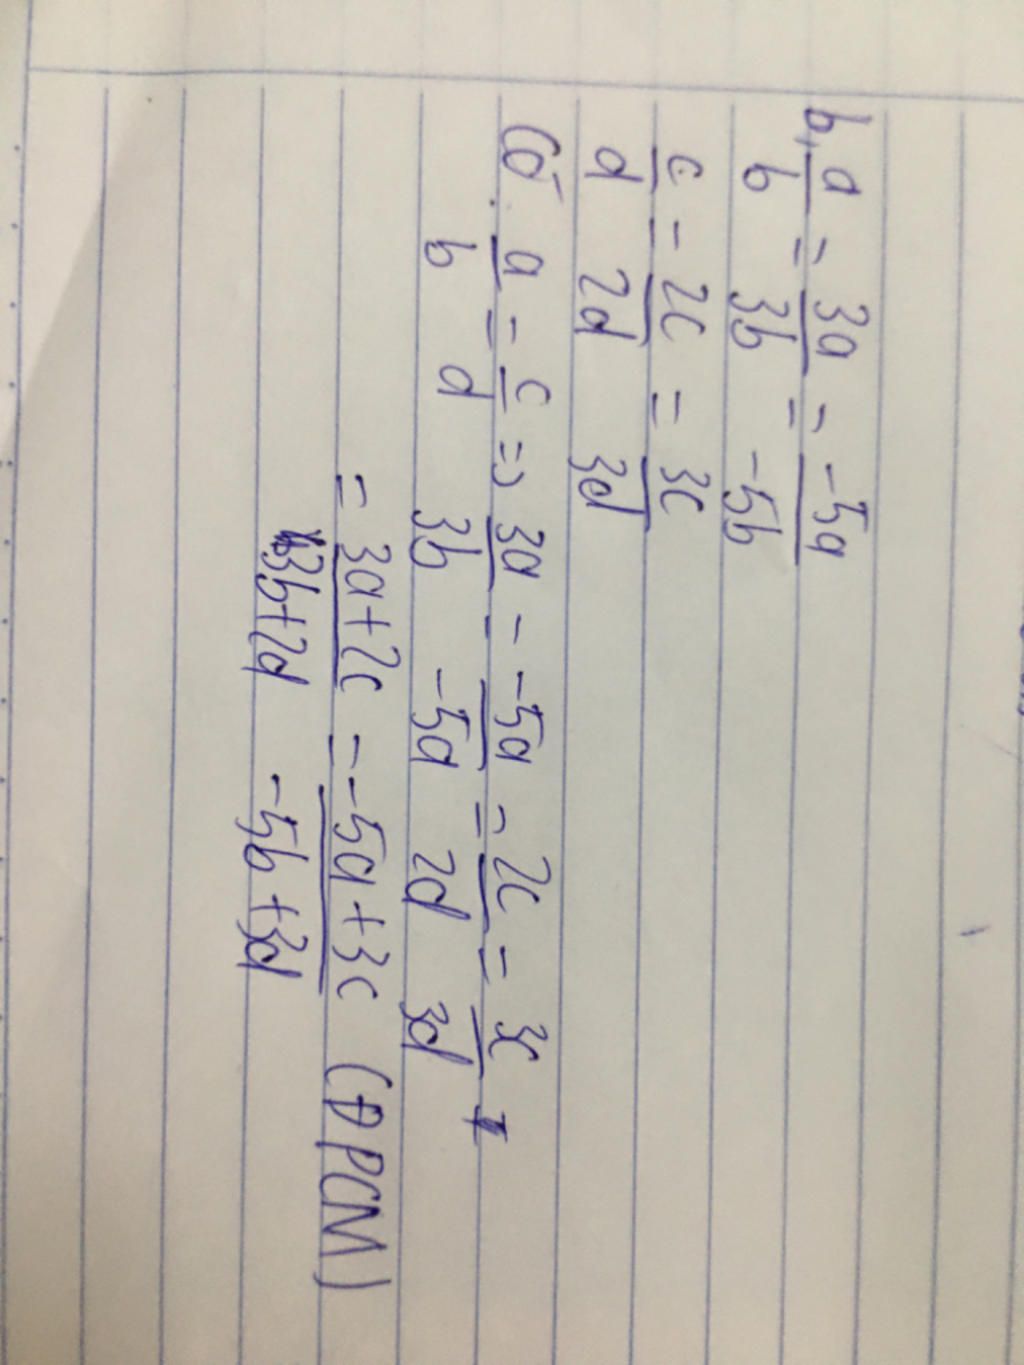 b, a/b = 3a/3b = -5a/-5b
c/d = 2c/2d = 3c/3d
Có a/b = c/d => 3a/3b = -5a/-5a = 2c/2d = 3c/3d
= 3a+2c/3b+2d = -5a+3c/-5b+3d (ĐPCM)